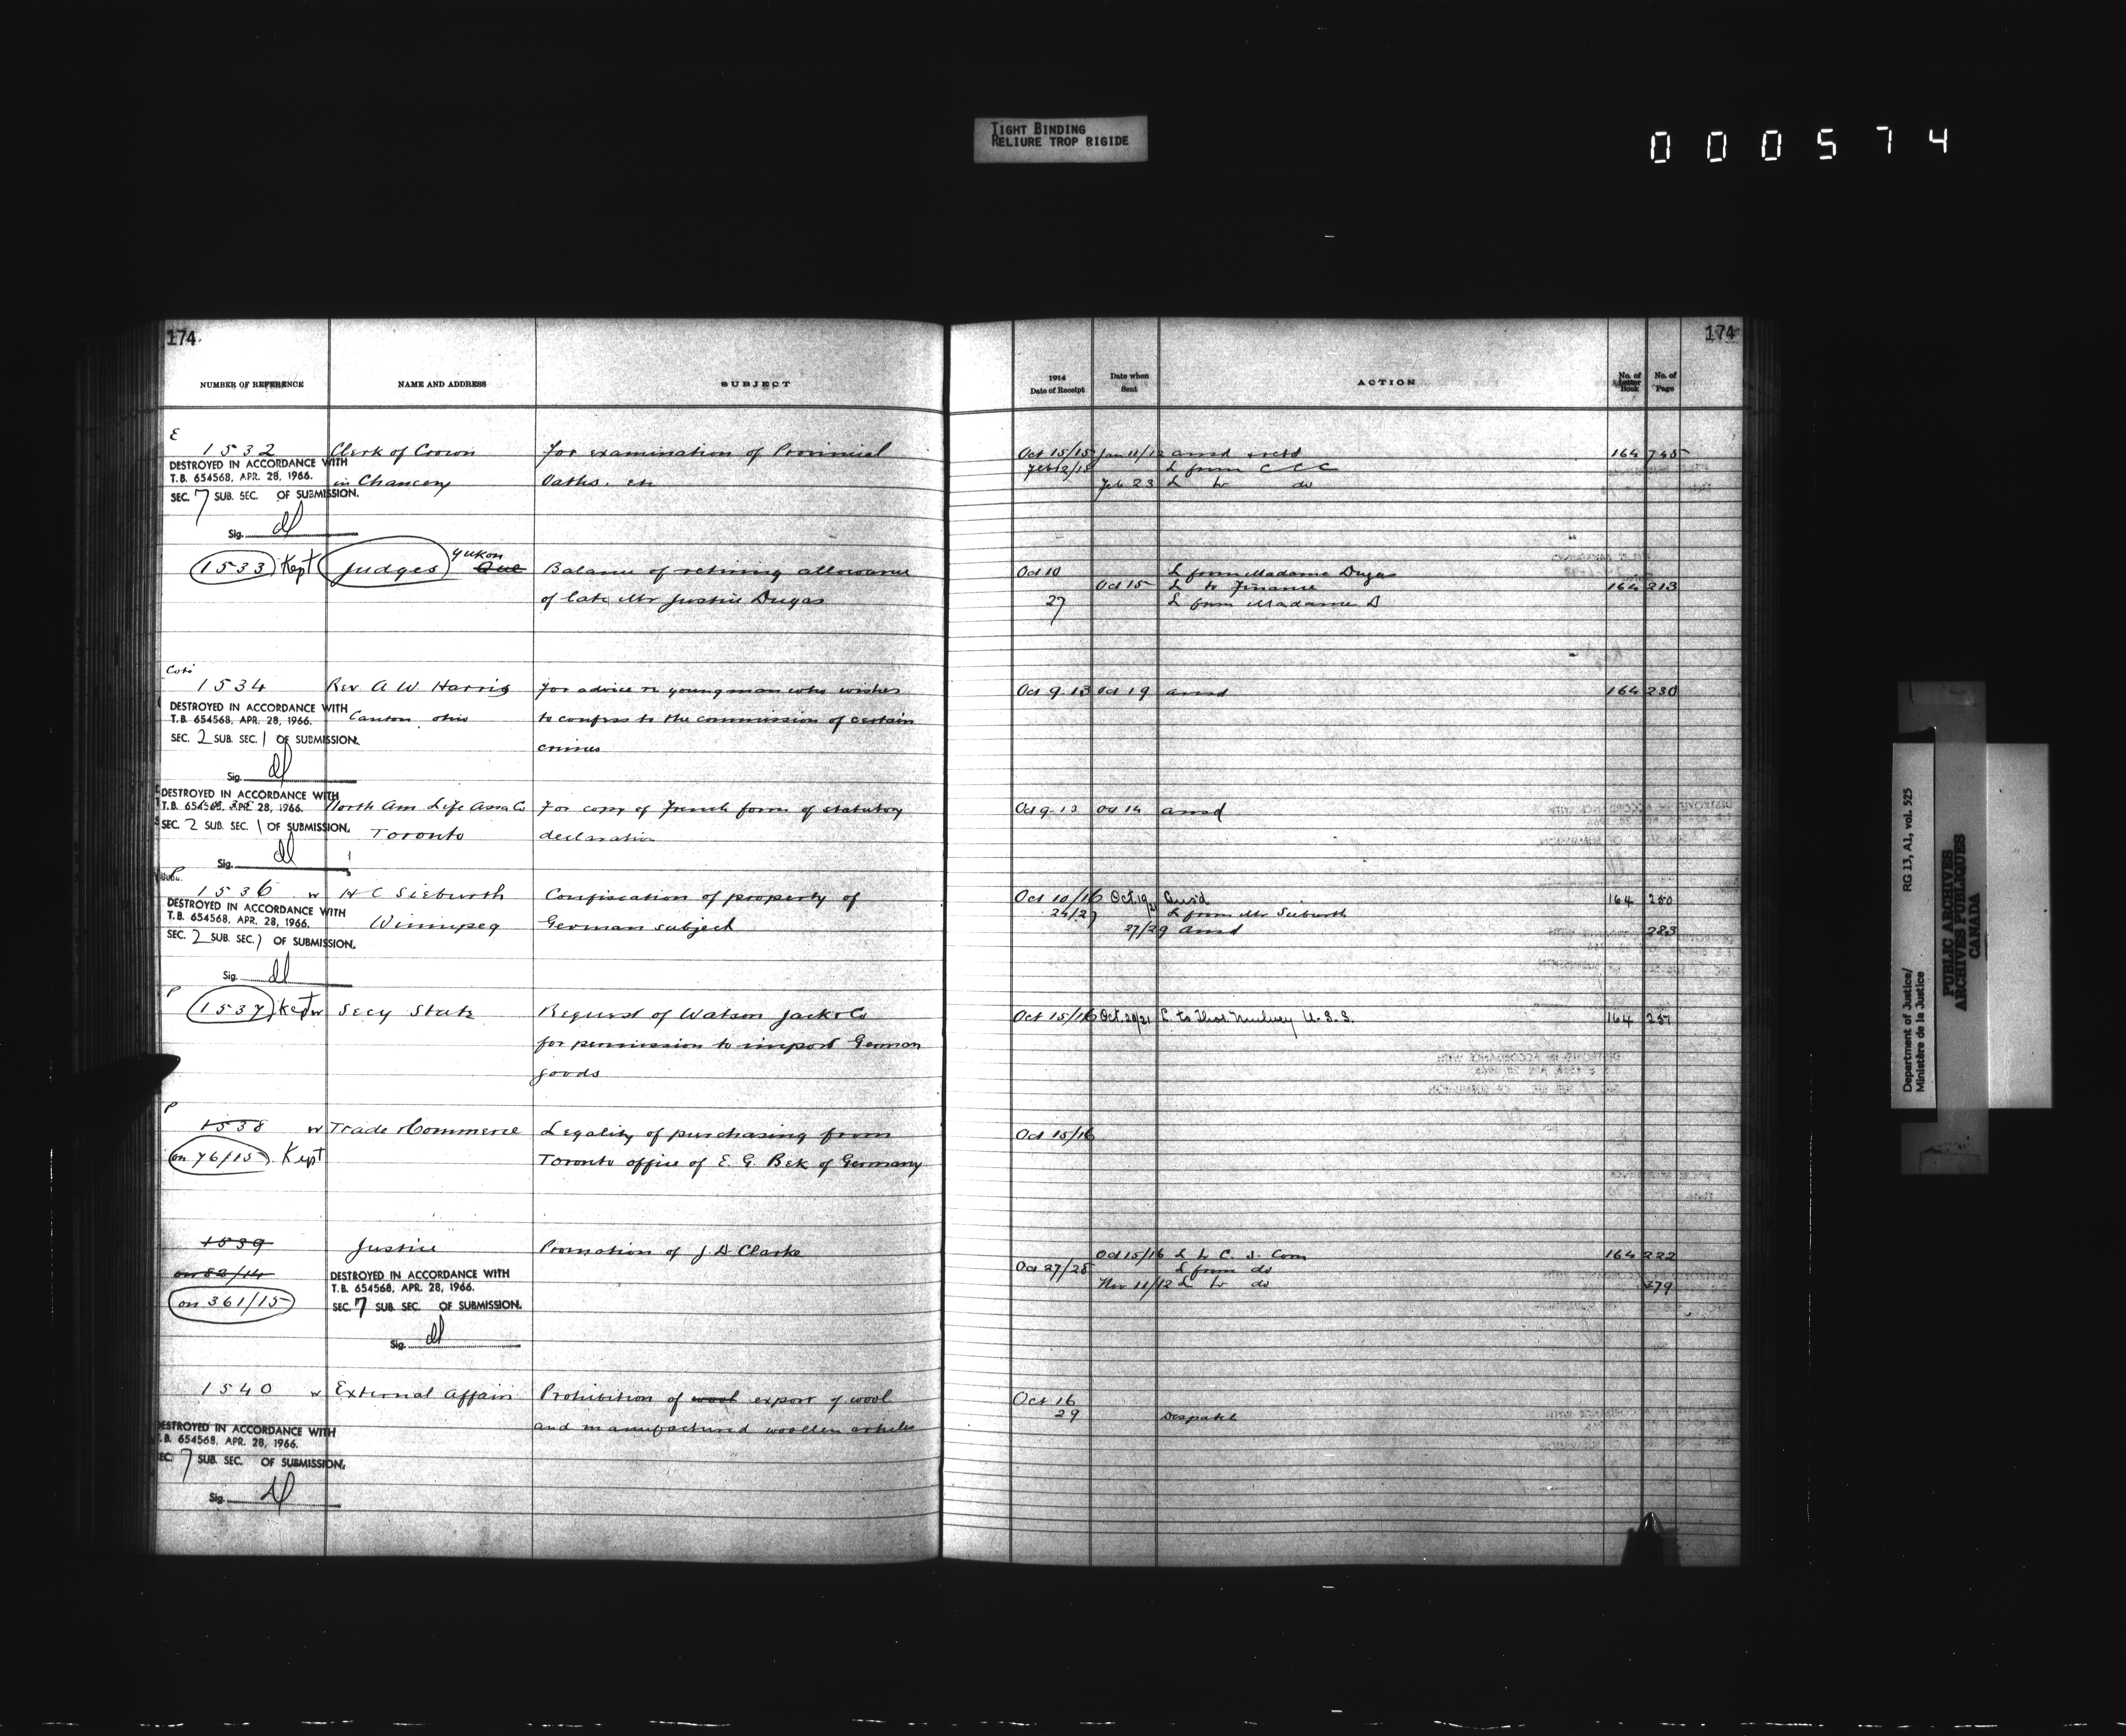 TIGHT BINDING
RELIURE TROP RIGIDE
000574
174
NUMBER OF REFERENCE NAME AND ADDRESS SUBJECT
E
1532 Clerk of Crown For examination of Provincial
DESTROYED IN ACCORDANCE WITH
T.B. 654568, APR. 28, 1966. in Chancery Oaths. etc
SEC. 7 SUB. SEC. OF SUBMISSION.
Sig.
1533 Kept Judges Yukon Que Balance of retiring allowance
of late Mr Justice Dugas
1534 Rev A W Harris For advice re young man who wishes
DESTROYED IN ACCORDANCE WITH
T.B. 654568, APR. 28, 1966. Canton Ohio to confess to the commission of certain
SEC. 2 SUB. SEC. 1 OF SUBMISSION.
crimes
Sig.
DESTROYED IN ACCORDANCE WITH
T.B. 654568, APR. 28, 1966. North Am Life Assa Co For copy of French form of statutory
SEC. 2 SUB. SEC. 1 OF SUBMISSION. Toronto declaration
Sig.
P
1536 w H C Sieburth Confiscation of property of
DESTROYED IN ACCORDANCE WITH
T.B. 654568, APR. 28, 1966. Winnipeg German subject
SEC. 2 SUB. SEC. 1 OF SUBMISSION.
Sig.
P
1537 Kept w Secy State Request of Watson Jack & Co
for permission to import German
goods
P
1538 w Trade & Commerce Legality of purchasing from
on 76/15 Kept Toronto office of E. G. Bek of Germany
1539 Justice Promotion of J. D Clarke
on 82/14 DESTROYED IN ACCORDANCE WITH
T.B. 654568, APR. 28, 1966.
on 361/15 SEC. 7 SUB. SEC. OF SUBMISSION.
Sig.
1540 w External Affairs Prohibition of wool export of wool
and manufactured woollen articles
DESTROYED IN ACCORDANCE WITH
T.B. 654568, APR. 28, 1966.
SEC. 7 SUB. SEC. OF SUBMISSION.
Sig.
174
1914 Date of Receipt Date when Sent ACTION No. of Letter Book No. of Page
Oct 15/15 Jan 11/12 ansd 164 745
Feb 12/15 L from C C C
Feb 23 L to do
Oct 10 L from Madame Dugas
Oct 15 L to Finance 164 213
27 L from Madame D
Oct 9 13 Oct 19 ansd 164 230
Oct 9 13 Oct 14 ansd
Oct 10/16 Oct 19/21 Ans'd 164 250
24/27 L from Mr Sieburth
27/29 ansd 283
Oct 15/16 Oct 20/21 L. to Thos. Mulvey U.S.S. 164 251
Oct 15/16
Oct 15/16 L to C. S. Com 164 222
Oct 27/28 L from do
Nov 11/12 L to do 379
Oct 16
29 Despatch
Department of Justice/ RG 13, A1, vol. 525
Ministère de la Justice
PUBLIC ARCHIVES
ARCHIVES PUBLIQUES
CANADA